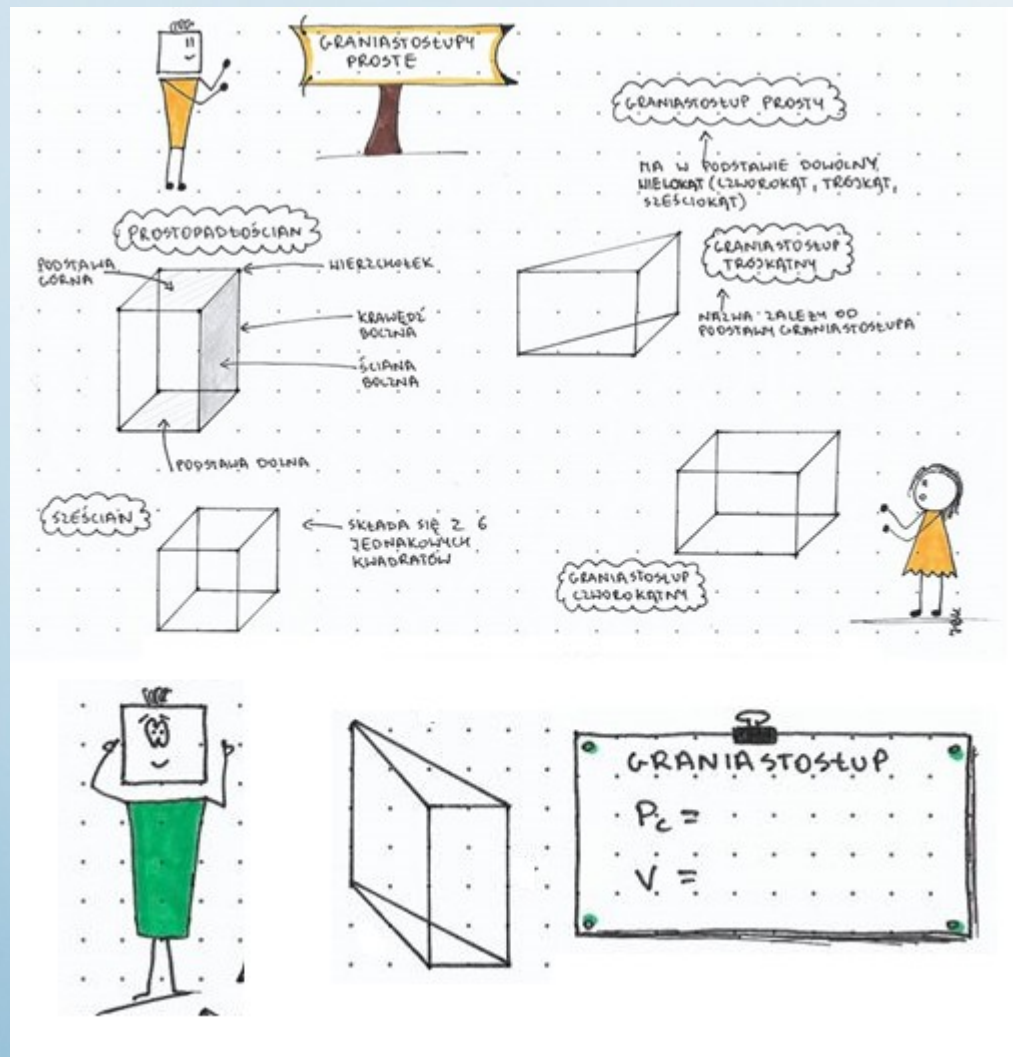 GRANIASTOSŁUPY
PROSTE
GRANIASTOSŁUP PROSTY
MA W PODSTAWIE DOWOLNY
WIELOKĄT (CZWOROKĄT, TRÓJKĄT,
SZEŚCIOKĄT)
PROSTOPADŁOŚCIAN
PODSTAWA
GÓRNA
WIERZCHOŁEK
KRAWĘDŹ
BOCZNA
ŚCIANA
BOCZNA
PODSTAWA DOLNA
GRANIASTOSŁUP
TRÓJKĄTNY
NAZWA ZALEŻY OD
PODSTAWY GRANIASTOSŁUPA
SZEŚCIAN
SKŁADA SIĘ Z 6
JEDNAKOWYCH
KWADRATÓW
GRANIASTOSŁUP
CZWOROKĄTNY
GRANIASTOSŁUP
Pc =
V =